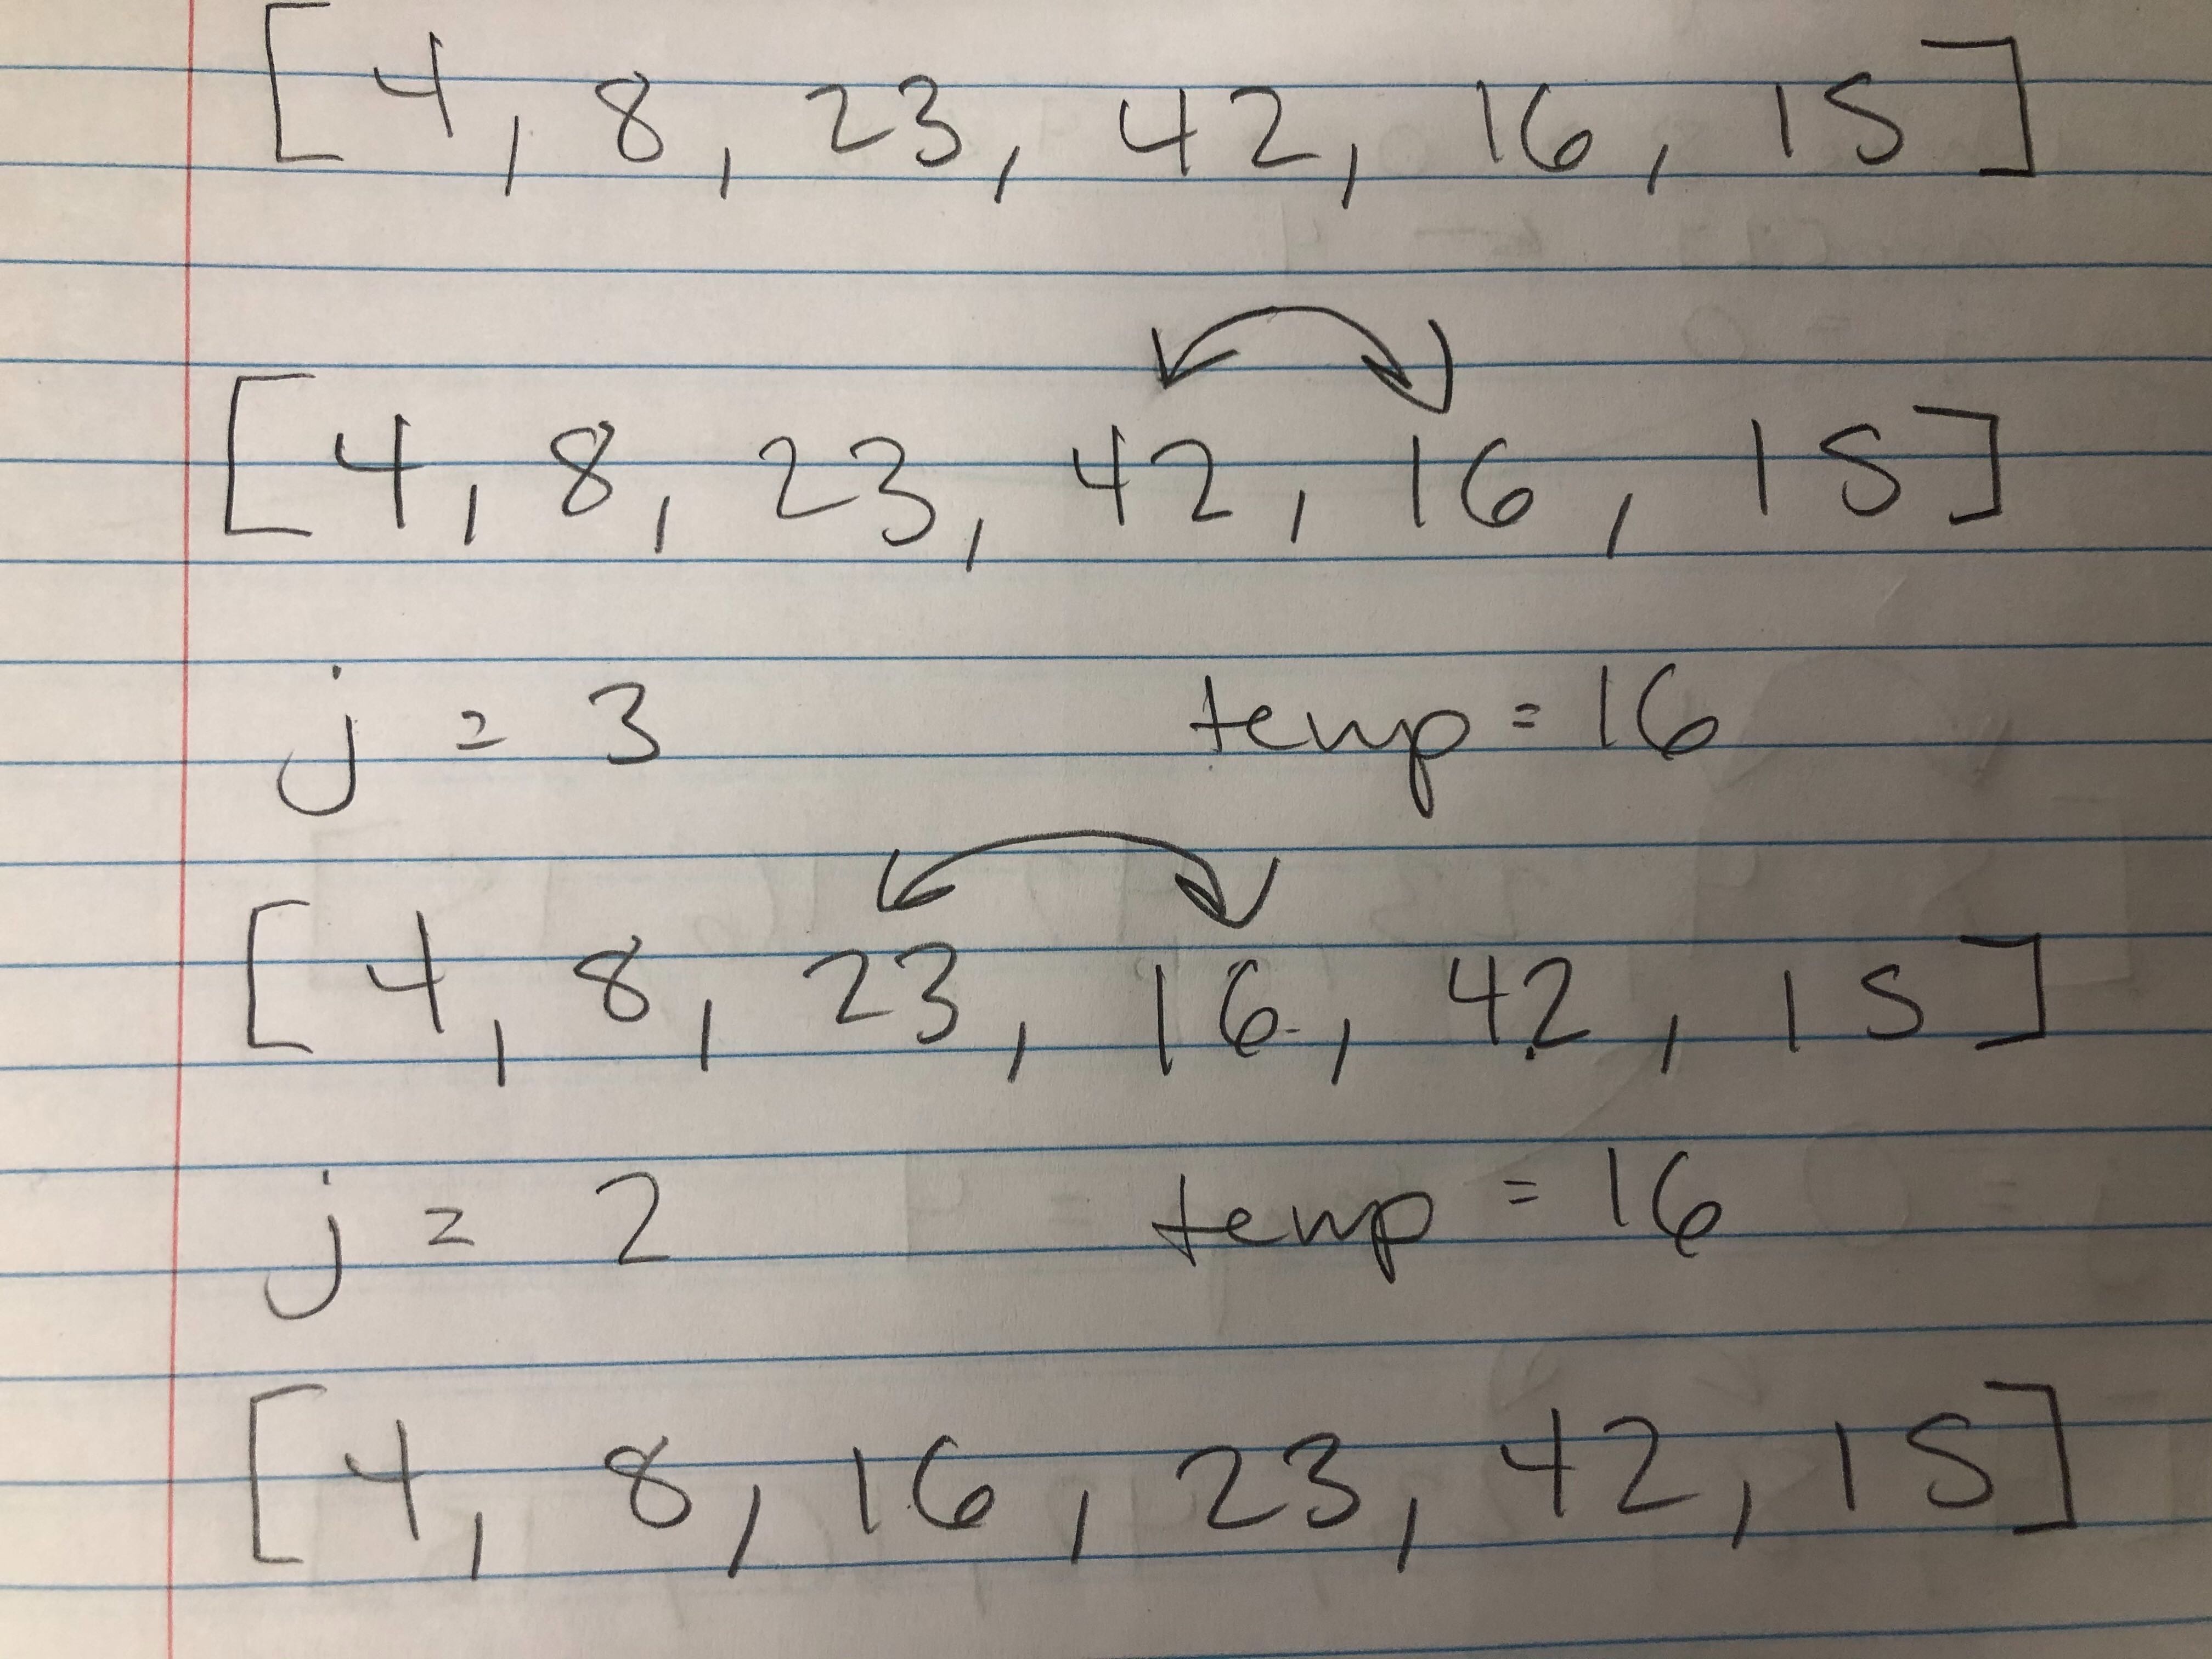 [4, 8, 23, 42, 16, 15]
[4, 8, 23, 42, 16, 15]
j = 3 temp = 16
[4, 8, 23, 16, 42, 15]
j = 2 temp = 16
[4, 8, 16, 23, 42, 15]